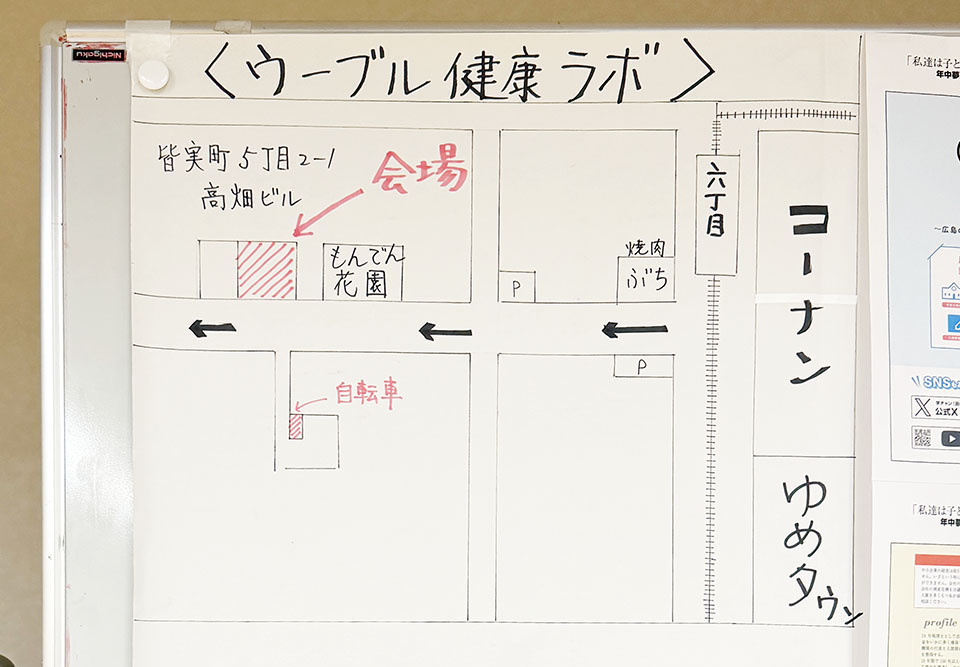 Nichigaku
〈ウーブル健康ラボ〉
皆実町5丁目2-1
高畑ビル
会場
もんでん
花園
P
焼肉
ぶち
六丁目
コーナン
P
自転車
ゆめタウン
「私達は子と
年中夢
～広島の
SNSも
公式X
「私達は子と
年中夢
profile